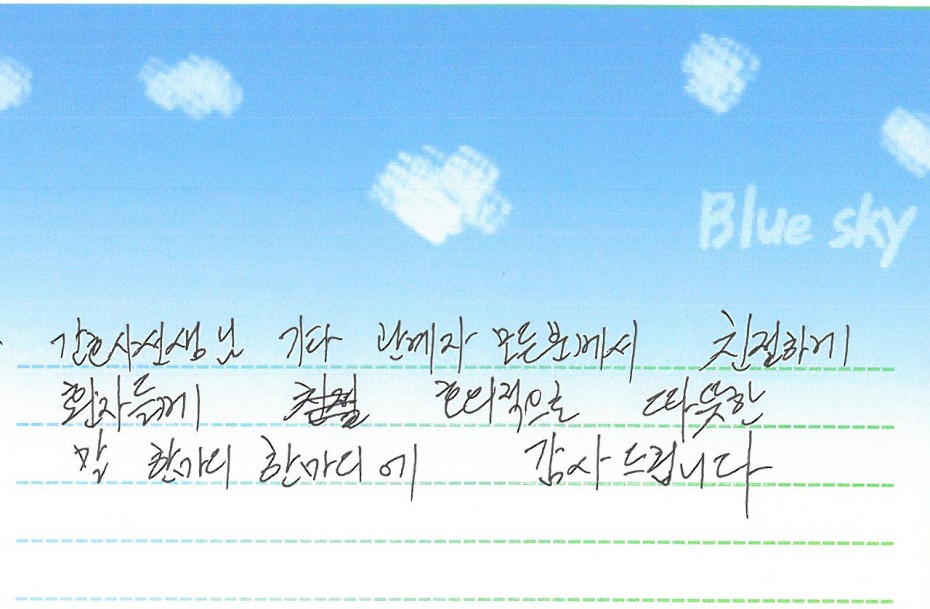 Blue sky
간호사선생님 기타 관계자 모든분께서 친절하게
환자들께 호의적으로 따뜻한
말 한마디 한마디에 감사드립니다